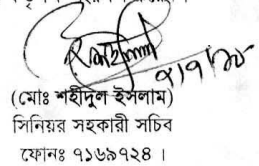 ৭/৭/১৫
(মোঃ শহীদুল ইসলাম)
সিনিয়র সহকারী সচিব
ফোনঃ ৭১৬৯৭২৪ ।